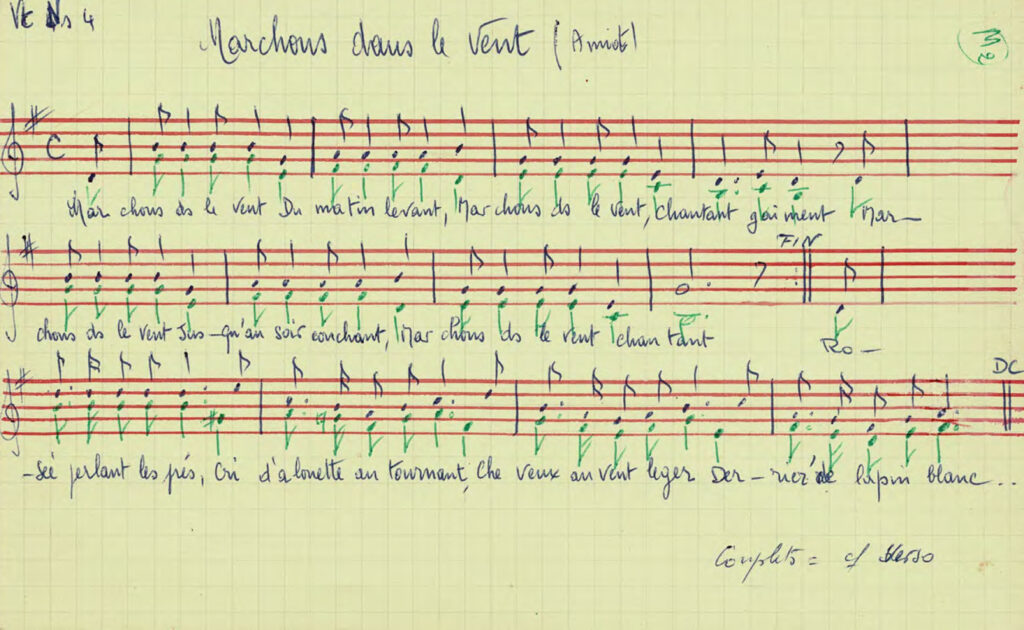 Vt Ns 4
Marchons dans le vent (Amiot)
M2
C
Mar chons ds le vent Du matin levant, Mar chons ds le vent, Chantant gaiment Mar—
FIN
chons ds le vent Jus—qu'au soir couchant, Mar chons ds le vent chan tant Ro—
DC
—sée perlant les prés, Cri d'alouette au tournant, Che veux au vent leger Der—rièr' le lapin blanc...
Couplets = cf verso